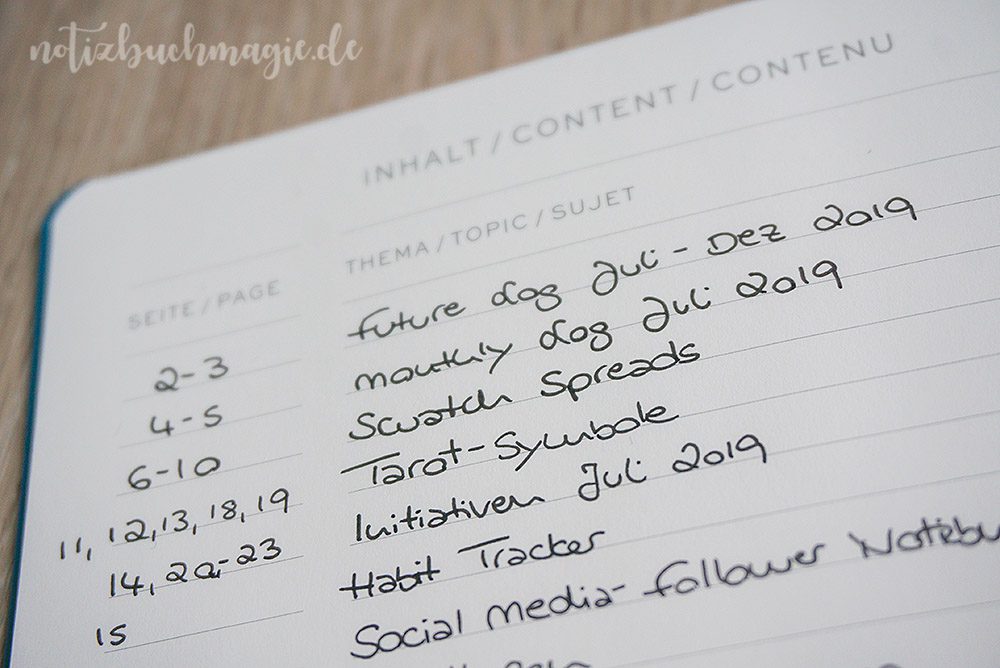 notizbuchmagie.de
INHALT / CONTENT / CONTENU
SEITE / PAGE THEMA / TOPIC / SUJET
2-3 future log Juli - Dez 2019
4-5 monthly log Juli 2019
6-10 Swatch Spreads
11, 12, 13, 18, 19 Tarot-Symbole
14, 20-23 Initiativen Juli 2019
15 Habit Tracker
Social media-Follower Notizbu